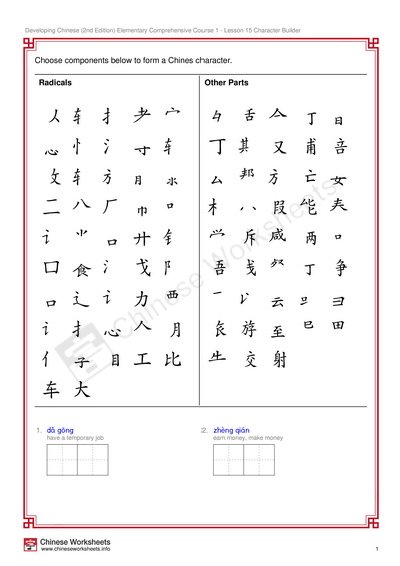 Developing Chinese (2nd Edition) Elementary Comprehensive Course 1 - Lesson 15 Character Builder
Choose components below to form a Chines character.
Radicals
Other Parts
车 扌 宀
舌 亼 丁 日
心 忄 氵 寸 车
丁 其 又 甫 音
攵 车 方 月 水
厶 邦 方 亡 女
二 八 厂 巾 口
木 八 叚 能 夹
讠 口 廾 钅
斥 咸 两 口
口 食 氵 戈 阝
吾 戋 丁 争
口 辶 讠 力 西
云 彐
讠 扌 心 人 月
斿 至 巳 田
亻 子 目 工 比
交 射
车 大
1. dǎ gōng
have a temporary job
2. zhèng qián
earn money, make money
Chinese Worksheets
Chinese Worksheets
www.chineseworksheets.info
1